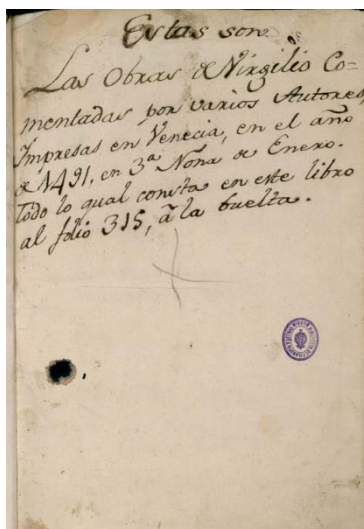 Estas son
Las Obras de Virgilio Co=
mentadas por varios Autores
Impresas en Venecia, en el año
de 1491, en 3ª Nona de Enero.
Todo lo qual consta en este libro
al folio 315, â la buelta.